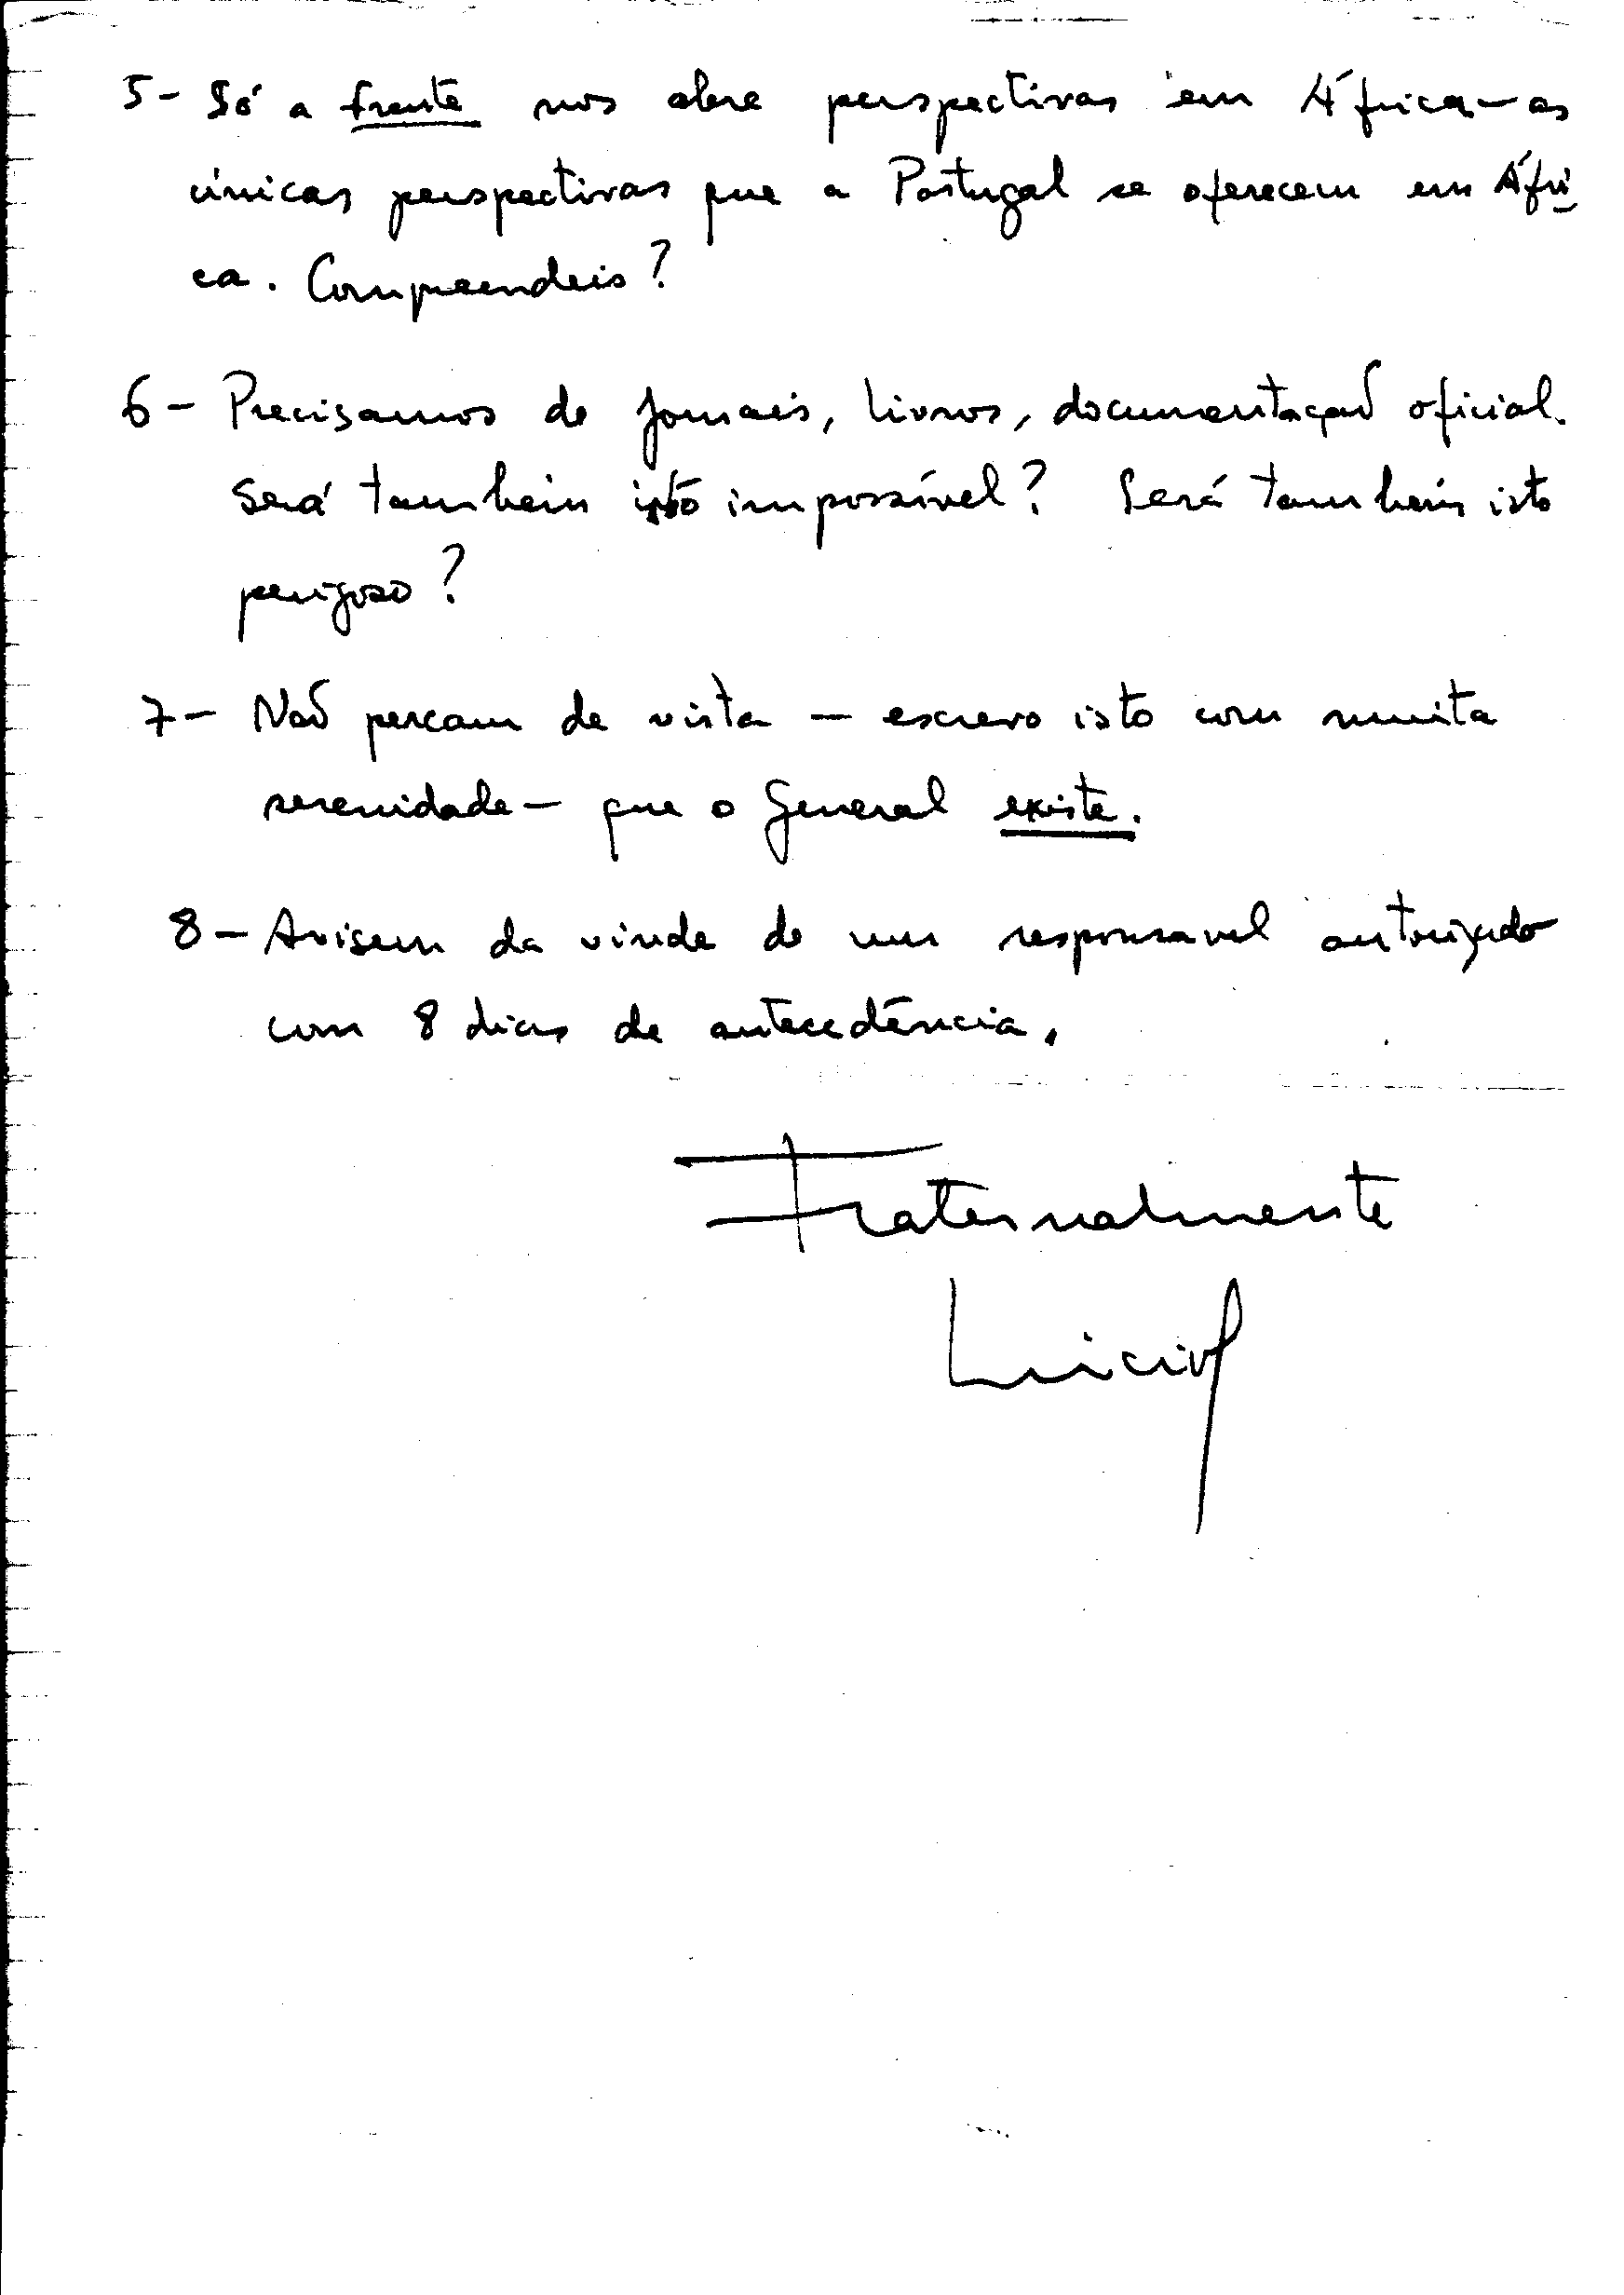 5 - Só a frente nos abre perspectivas em África - as
únicas perspectivas que a Portugal se oferecem em Áfri
ca. Compreendeis?
6 - Precisamos de jornais, livros, documentação oficial.
Será também isto impossível? Será também isto
perigoso?
7 - Não percam de vista - escrevo isto com muita
serenidade - que o General existe.
8 - Avisem da vinda de um responsavel autorizado
com 8 dias de antecedência.
Fraternalmente
Lúcio